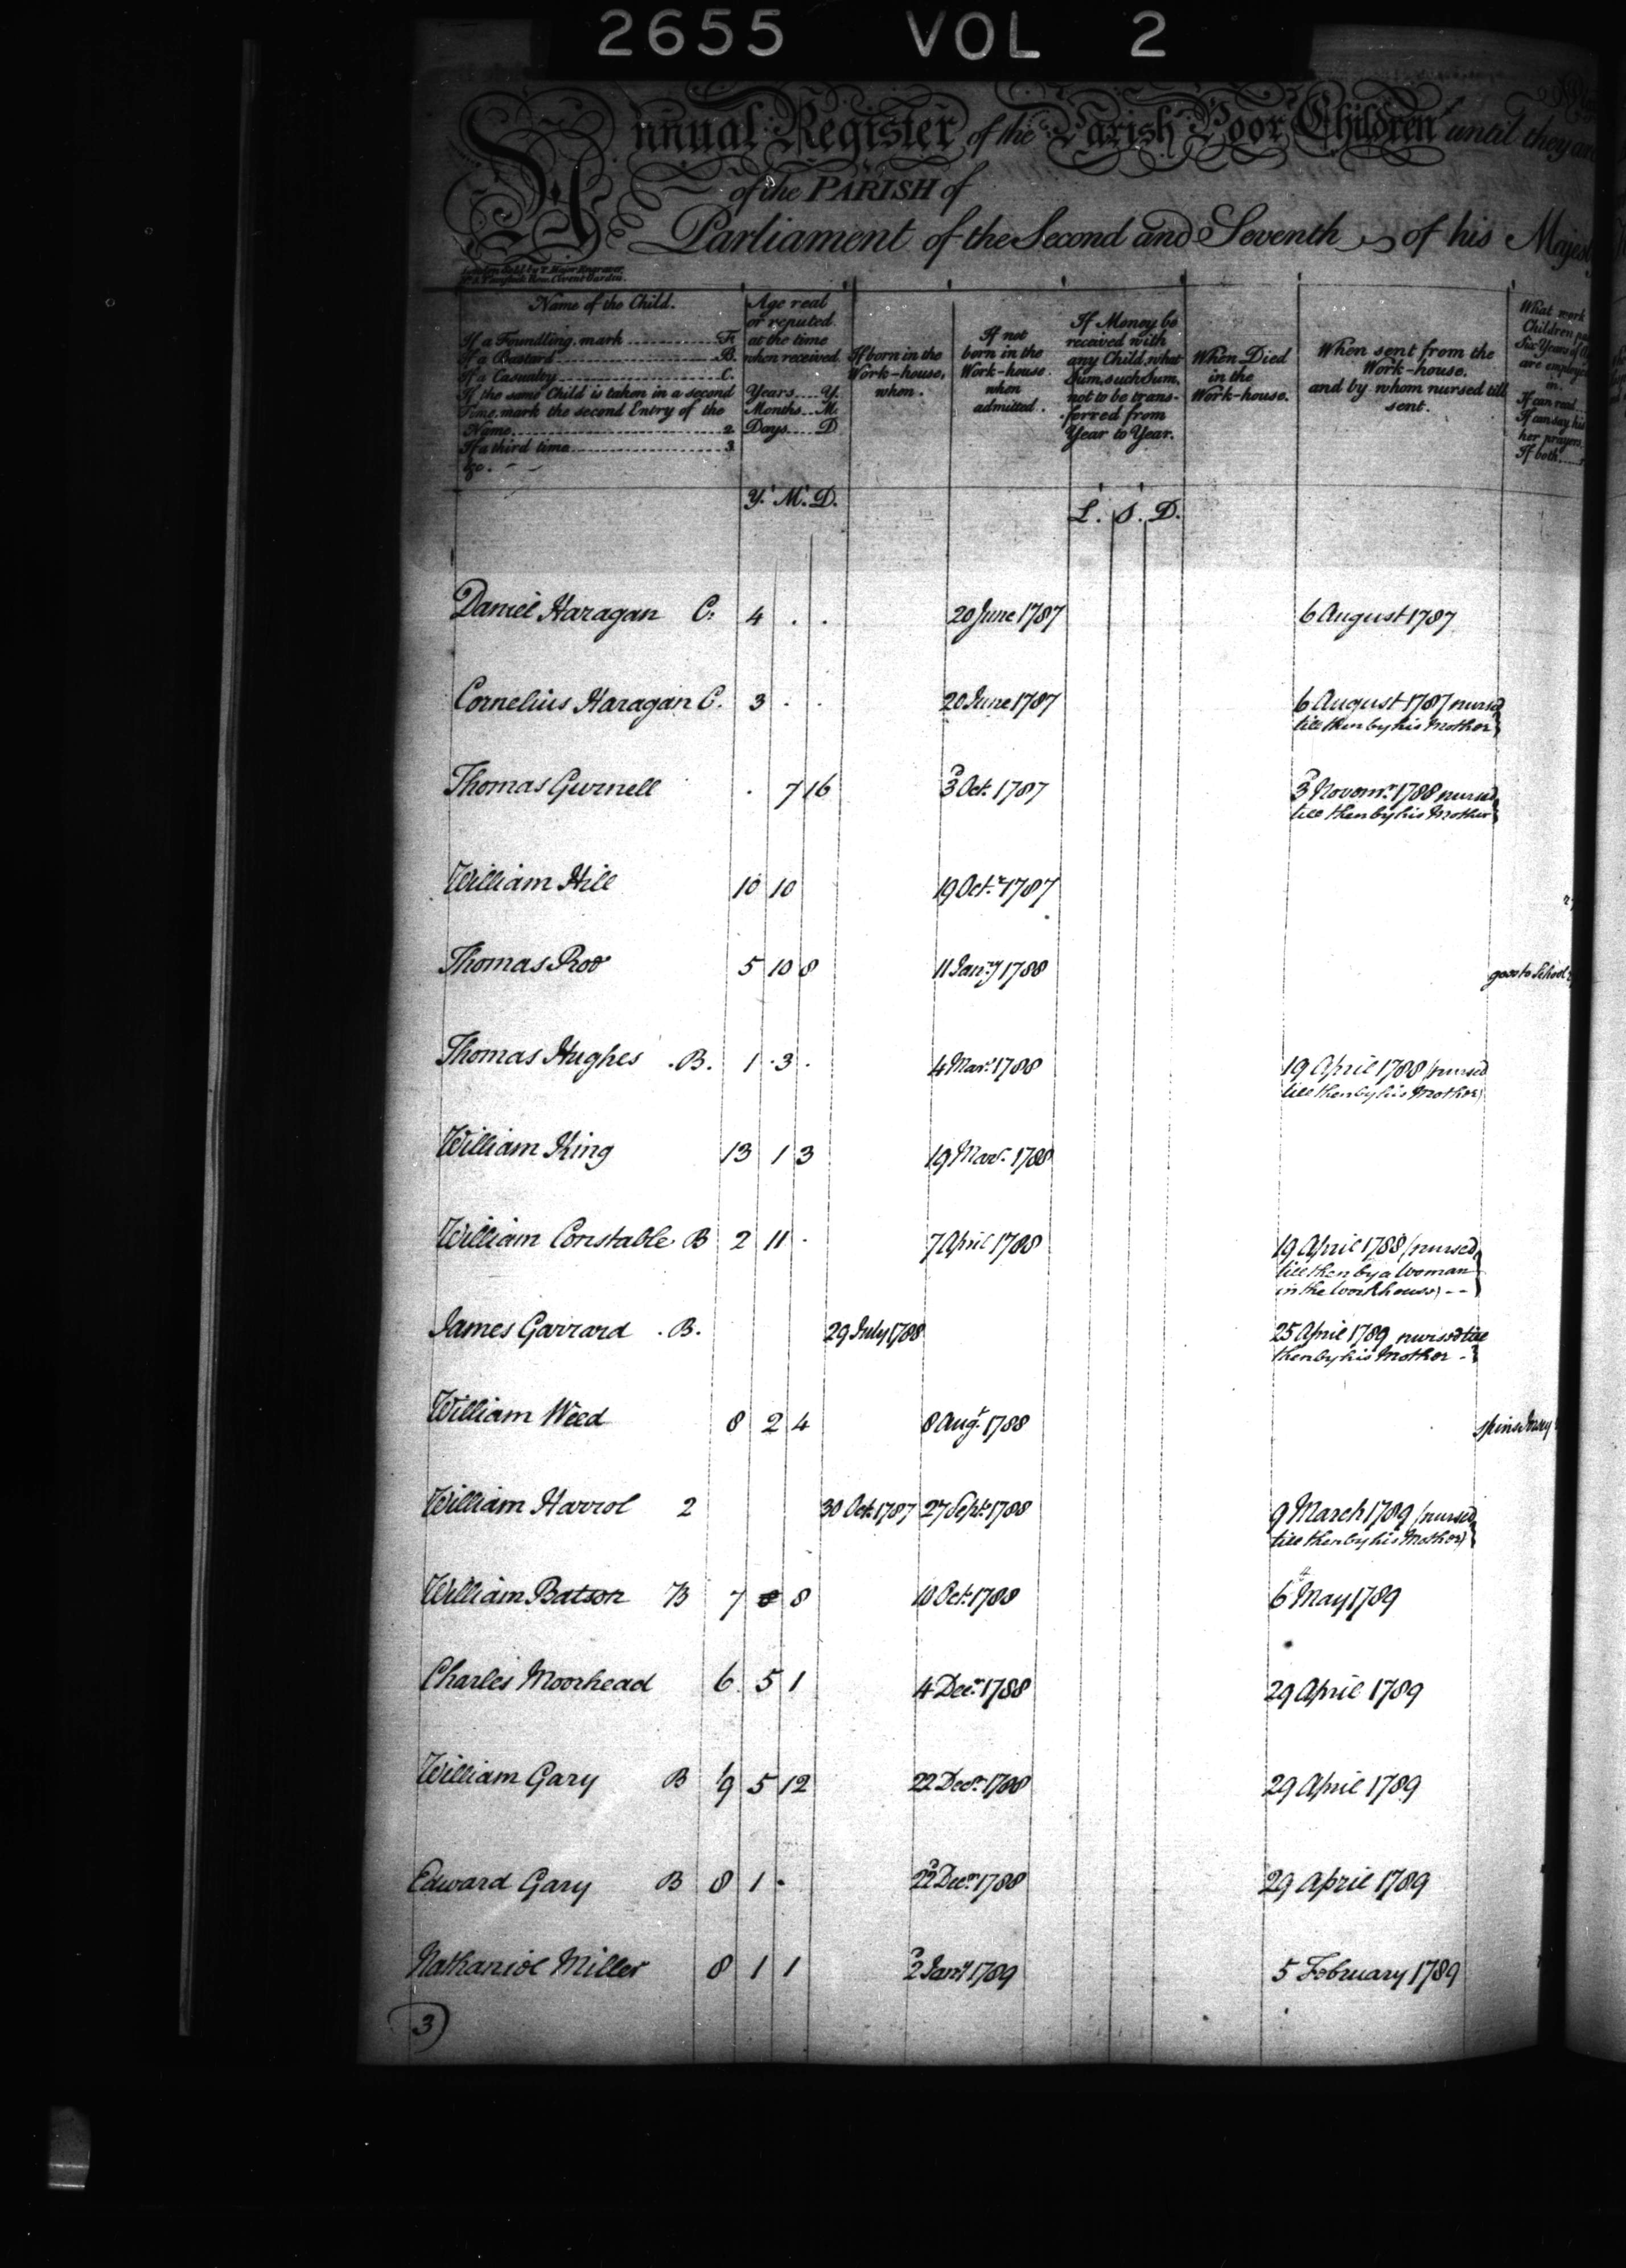 2655 VOL 2
Annual Register of the Parish Poor Children until they are
of the PARISH of
Parliament of the Second and Seventh of his Majesty
London Sold by T. Major Engraver,
Name of the Child.
If a Foundling mark F.
If a Bastard B.
If a Casualty C.
If the same Child is taken in a second
Time, mark the second Entry of the
Name 2
If a third time 3
&c.
Age real
or reputed
at the time
when received.
Years Y.
Months M.
Days D
If born in the
Work-house,
when.
If not
born in the
Work-house
when
admitted.
If Money be
received with
any Child, what
Sum, such Sum,
not to be trans-
ferred from
Year to Year.
When Died
in the
Work-house.
When sent from the
Work-house.
and by whom nursed till
sent.
What work
Children
Six Years of
are employed
in.
If can read
If can say his
her prayers
If both
Y. M. D. L. S. D.
Daniel Haragan C. 4 . . 20 June 1787 6 August 1787
Cornelius Haragan C. 3 . . 20 June 1787 6 August 1787 nursed
till then by his Mother
Thomas Gurnell . 7 16 3 Oct. 1787 3 Novemr. 1788 nursed
till then by his Mother
William Hill 10 10 19 Octr. 1787
Thomas Roo 5 10 8 11 Jany 1788 goes to School
Thomas Hughes . B. 1 . 3 . 4 Mar. 1788 19 April 1788 (nursed
till then by his Mother)
William King 13 1 3 19 Mar. 1788
William Constable B 2 11 . 7 April 1788 19 April 1788 (nursed
till then by a Woman
in the Workhouse) - -
James Garrard . B. 29 July 1788 25 April 1789 nursed till
then by his Mother -
William Weed 8 2 4 8 Augt. 1788 spins Jersey
William Harrol 2 30 Oct. 1787 27 Sept. 1788 9 March 1789 (nursed
till then by his Mother)
William Batson B 7 8 8 10 Oct. 1788 6 May 1789
Charles Moorhead 6 5 1 4 Decr. 1788 29 April 1789
William Gary B 9 5 12 22 Decr. 1788 29 April 1789
Edward Gary B 8 1 . 22 Decr. 1788 29 April 1789
Nathaniel Miller 8 1 1 2 Jany 1789 5 February 1789
3